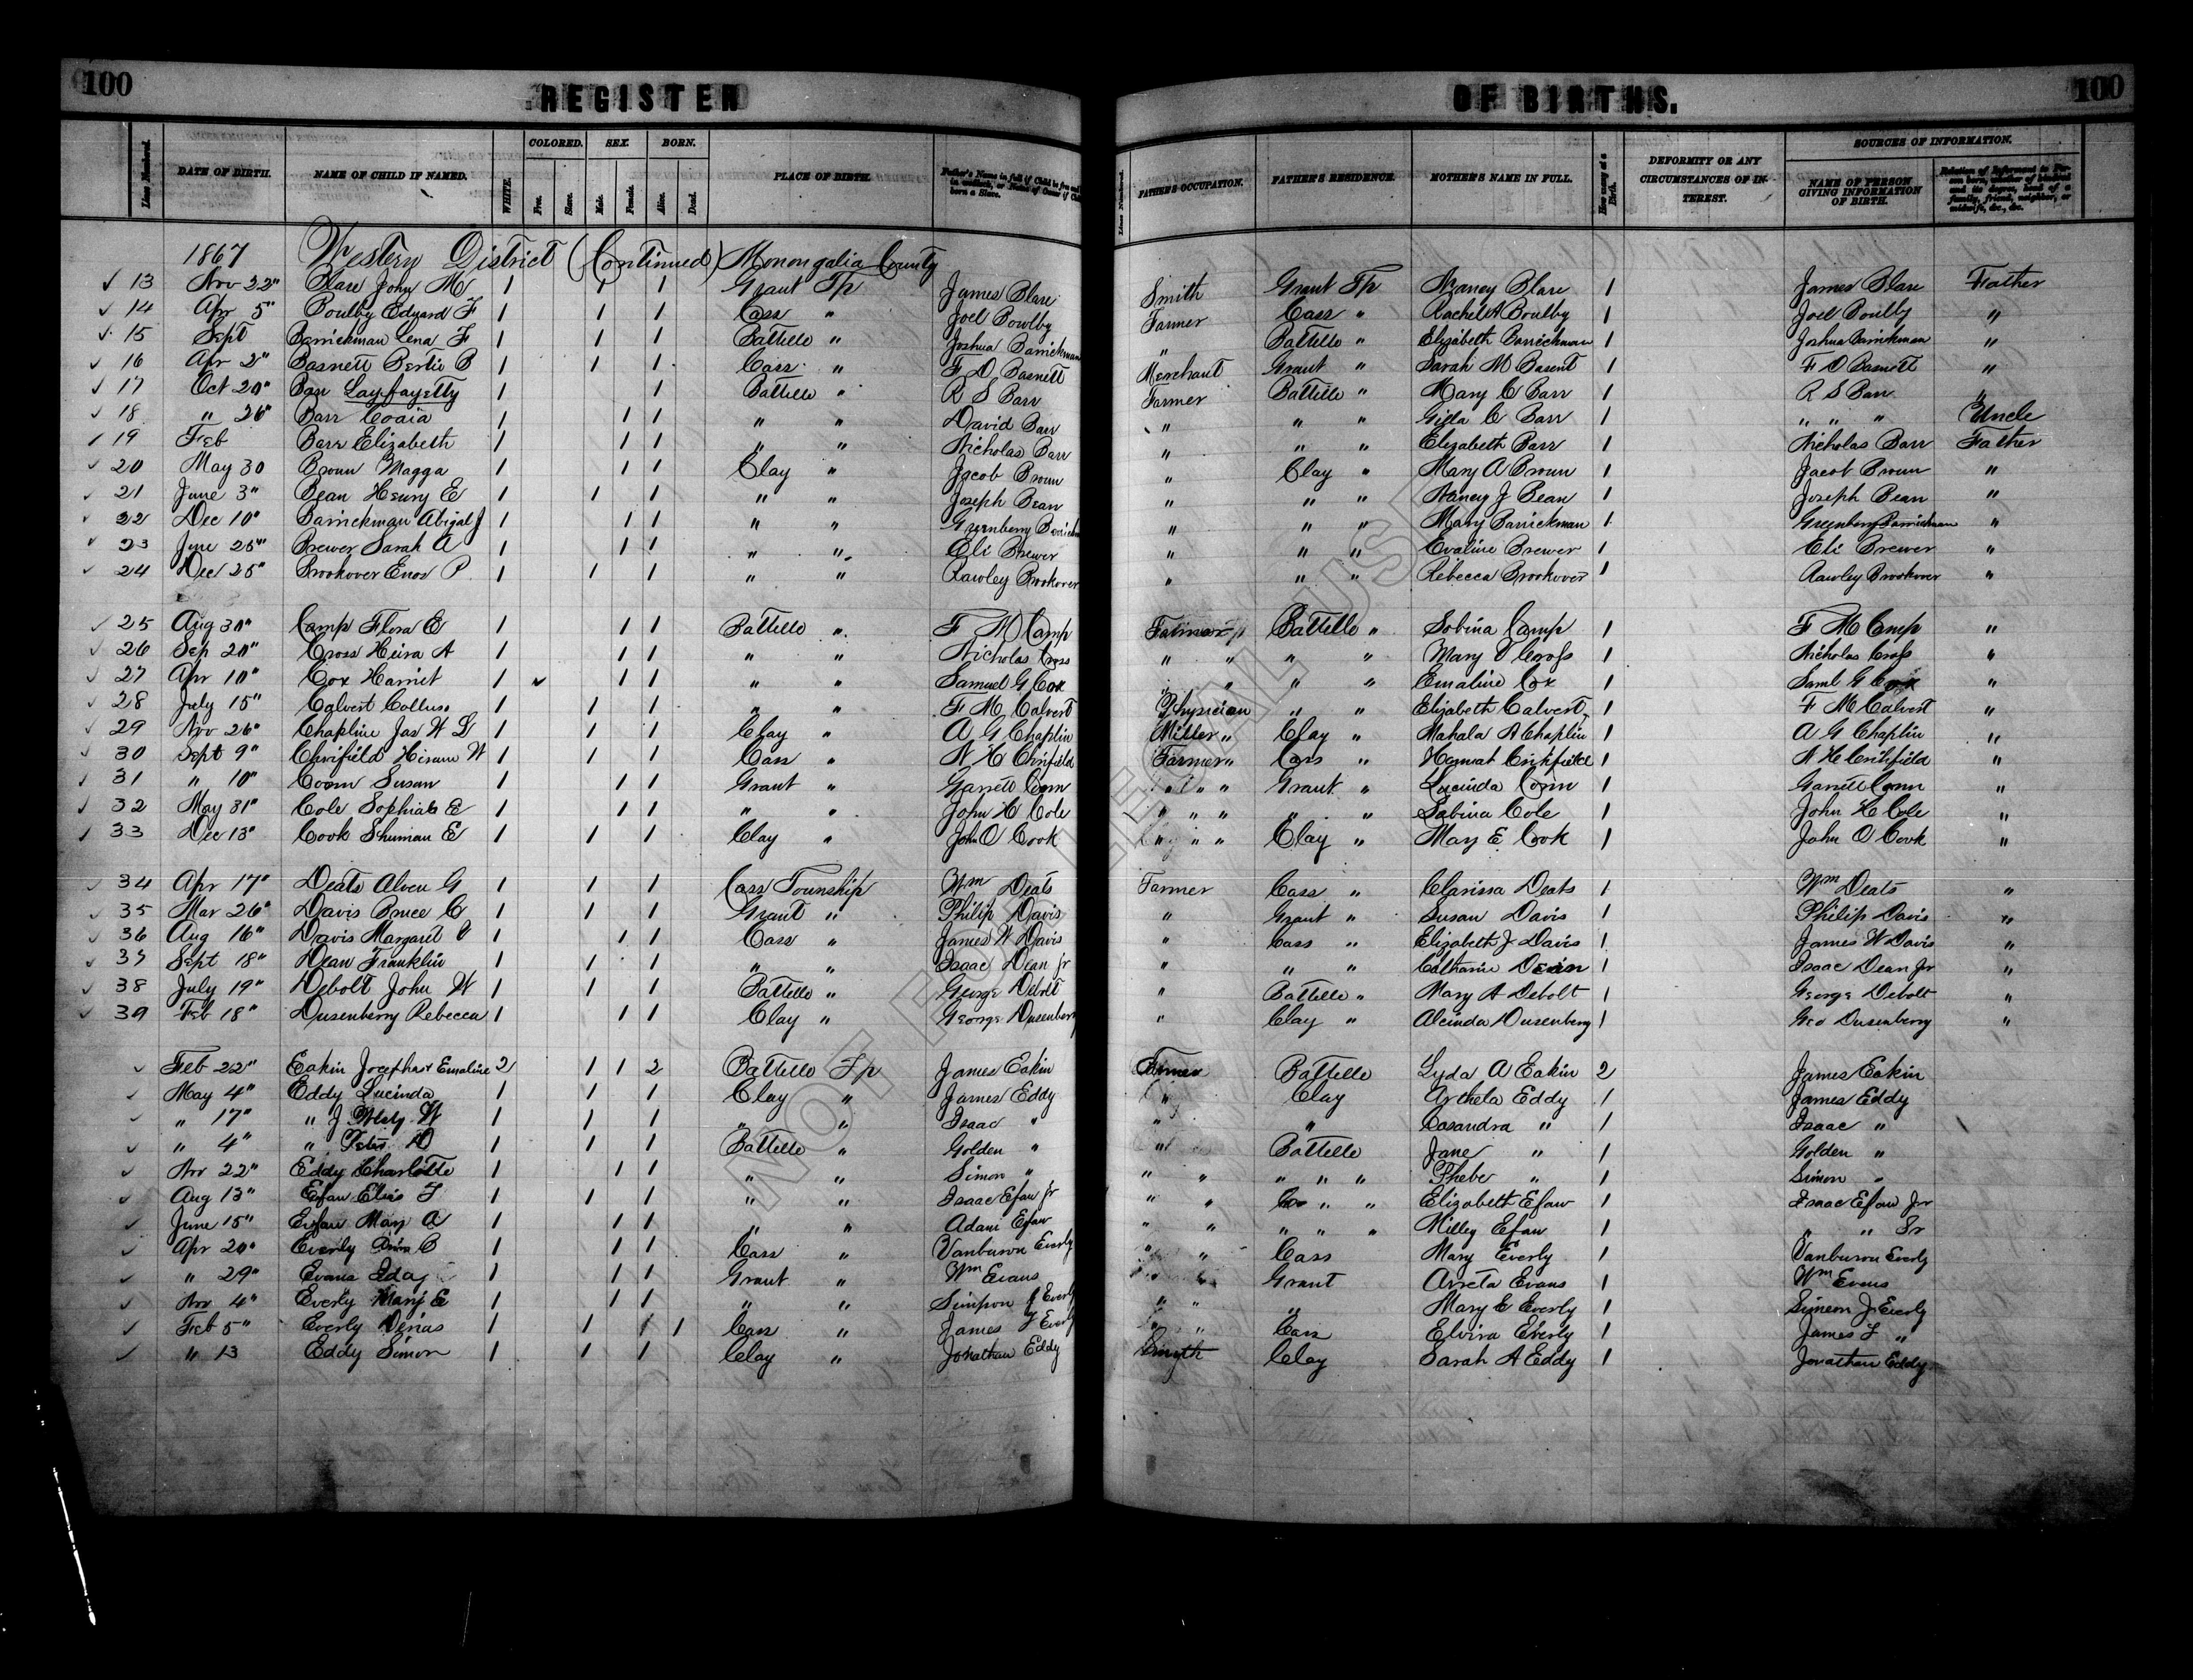 100 REGISTER OF BIRTHS. 100
Lines Numbered. DATE OF BIRTH. NAME OF CHILD IF NAMED. WHITE. COLORED. Free. Slave. SEX. Male. Female. BORN. Alive. Dead. PLACE OF BIRTH. Father's Name in full if Child is free and born in wedlock, or Name of Owner if Child born a Slave. Lines Numbered. FATHER'S OCCUPATION. FATHER'S RESIDENCE. MOTHER'S NAME IN FULL. How many at a Birth. DEFORMITY OR ANY CIRCUMSTANCES OF INTEREST. SOURCES OF INFORMATION. NAME OF PERSON GIVING INFORMATION OF BIRTH. Relation of Informant to Person born, whether of kindred and its degree, head of a family, friend, neighbor, or midwife, &c., &c.
1867 Western District (Continued) Monongalia County
13 Nov 22" Blare John M 1 1 1 Grant Tp James Blare Smith Grant Tp Nancy Blare 1 James Blare Father
14 Apr 5" Boulby Edward F 1 1 1 Cass " Joel Bowlby Farmer Cass " Rachel A Boulby 1 Joel Boulby "
15 Sept Barrickman Lena F 1 1 1 Battelle " Joshua Barrickman " Battelle " Elizabeth Barrickman 1 Joshua Barrickman "
16 Apr 2" Basnett Bertie B 1 1 1 Cass " F D Basnett Merchant Grant " Sarah M Basent 1 F D Basnett "
17 Oct 20" Barr Layfayetty 1 1 Battelle " R S Barr Farmer Battelle " Mary C Barr 1 R S Barr "
18 " 26" Barr 1 1 1 " " David Barr " " " C Barr 1 " " " Uncle
19 Feb Barr Elizabeth 1 1 1 " " Nicholas Barr " " " Elizabeth Barr 1 Nicholas Barr Father
20 May 30 Brown Magga 1 1 1 Clay " Jacob Brown " Clay " Mary A Brown 1 Jacob Brown "
21 June 3" Bean Henry E 1 1 1 " " Joseph Bean " " " Nancy J Bean 1 Joseph Bean "
22 Dec 10" Barrickman Abigal J 1 1 1 " " Greenberry " " " Mary Barrickman 1 Greenberry Barrickman "
23 June 25" Brewer Sarah A 1 1 1 " " Eli Brewer " " " Evaline Brewer 1 Eli Brewer "
24 Dec 25" Brookover Enos P 1 1 1 " " Rawley Brookover " " " Rebecca Brookover 1 Rawley Brookover "
25 Aug 30" Camp Flora E 1 1 1 Battelle " F M Camp Farmer Battelle " Sobina Camp 1 F M Camp "
26 Sep 20" Cross A 1 1 1 " " Nicholas Cross " " " " Mary Cross 1 Nicholas Cross "
27 Apr 10" Cox Harriet 1 1 1 " " Samuel G Cox " " " " Emaline Cox 1 Saml G Cox "
28 July 15" Calvert 1 1 1 " " F M Calvert Physician " " Elizabeth Calvert 1 F M Calvert "
29 Nov 26" Chapline Jas W L 1 1 1 Clay " A G Chaplin Miller " Clay " Mahala A Chaplin 1 A G Chaplin "
30 Sept 9" Hiram W 1 1 1 Cass " Farmer " Cass " Hannah 1 "
31 " 10" Susan 1 1 1 Grant " Garrett " " Grant " Lucinda 1 Garrett "
32 May 31" Cole E 1 1 1 " " John H Cole " " " " Sabina Cole 1 John H Cole "
33 Dec 13" Cook Shuman E 1 1 1 Clay " John O Cook " " Clay " Mary E Cook 1 John O Cook "
34 Apr 17" Deats Alven G 1 1 1 Cass Township Wm Deats Farmer Cass " Clarissa Deats 1 Wm Deats "
35 Mar 26" Davis Bruce C 1 1 1 Grant " Philip Davis " Grant " Susan Davis 1 Philip Davis "
36 Aug 16" Davis Margaret 1 1 1 Cass " James W Davis " Cass " Elizabeth J Davis 1 James W Davis "
37 Sept 18" Dean Franklin 1 1 1 " " Isaac Dean Jr " " " Catharine Dean 1 Isaac Dean Jr "
38 July 19" Debolt John W 1 1 1 Battelle " George Debolt " Battelle " Mary A Debolt 1 George Debolt "
39 Feb 18" Dusenberry Rebecca 1 1 1 Clay " George Dusenberry " Clay " Alcinda Dusenberry 1 Geo Dusenberry "
Feb 22" Eakin Josephas & Emaline 2 1 1 2 Battelle Tp James Eakin Farmer Battelle Lyda A Eakin 2 James Eakin
May 4" Eddy Lucinda 1 1 1 Clay " James Eddy " Clay Arthela Eddy 1 James Eddy
" 17" " J W 1 1 1 " " Isaac " " " Casandra " 1 Isaac "
" 4" " 1 1 1 Battelle " Golden " " Battelle Jane " 1 Golden "
Nov 22" Eddy Charlotte 1 1 1 " " Simon " " " " " " Phebe " 1 Simon "
Aug 13" Efaw 1 1 1 " " Isaac Efaw Jr " " " " Elizabeth Efaw 1 Isaac Efaw Jr
June 15" Efaw Mary A 1 1 1 " " Adam Efaw " " " " " Milley Efaw 1 " " Sr
Apr 20" Everly C 1 1 1 Cass " Vanburen Everly " " Cass Mary Everly 1 Vanburen Everly
" 29" Evans Ida 1 1 1 Grant " Wm Evans " Grant Arreta Evans 1 Wm Evans
Nov 4" Everly Mary E 1 1 1 " " J Everly " " " Mary E Everly 1 Simeon J Everly
Feb 5" Everly 1 1 1 1 Cass " James Everly " " Cass Elvira Everly 1 James "
" 13 Eddy Simon 1 1 1 Clay " Jonathan Eddy Smyth Clay Sarah A Eddy 1 Jonathan Eddy
NOT FOR LEGAL USE